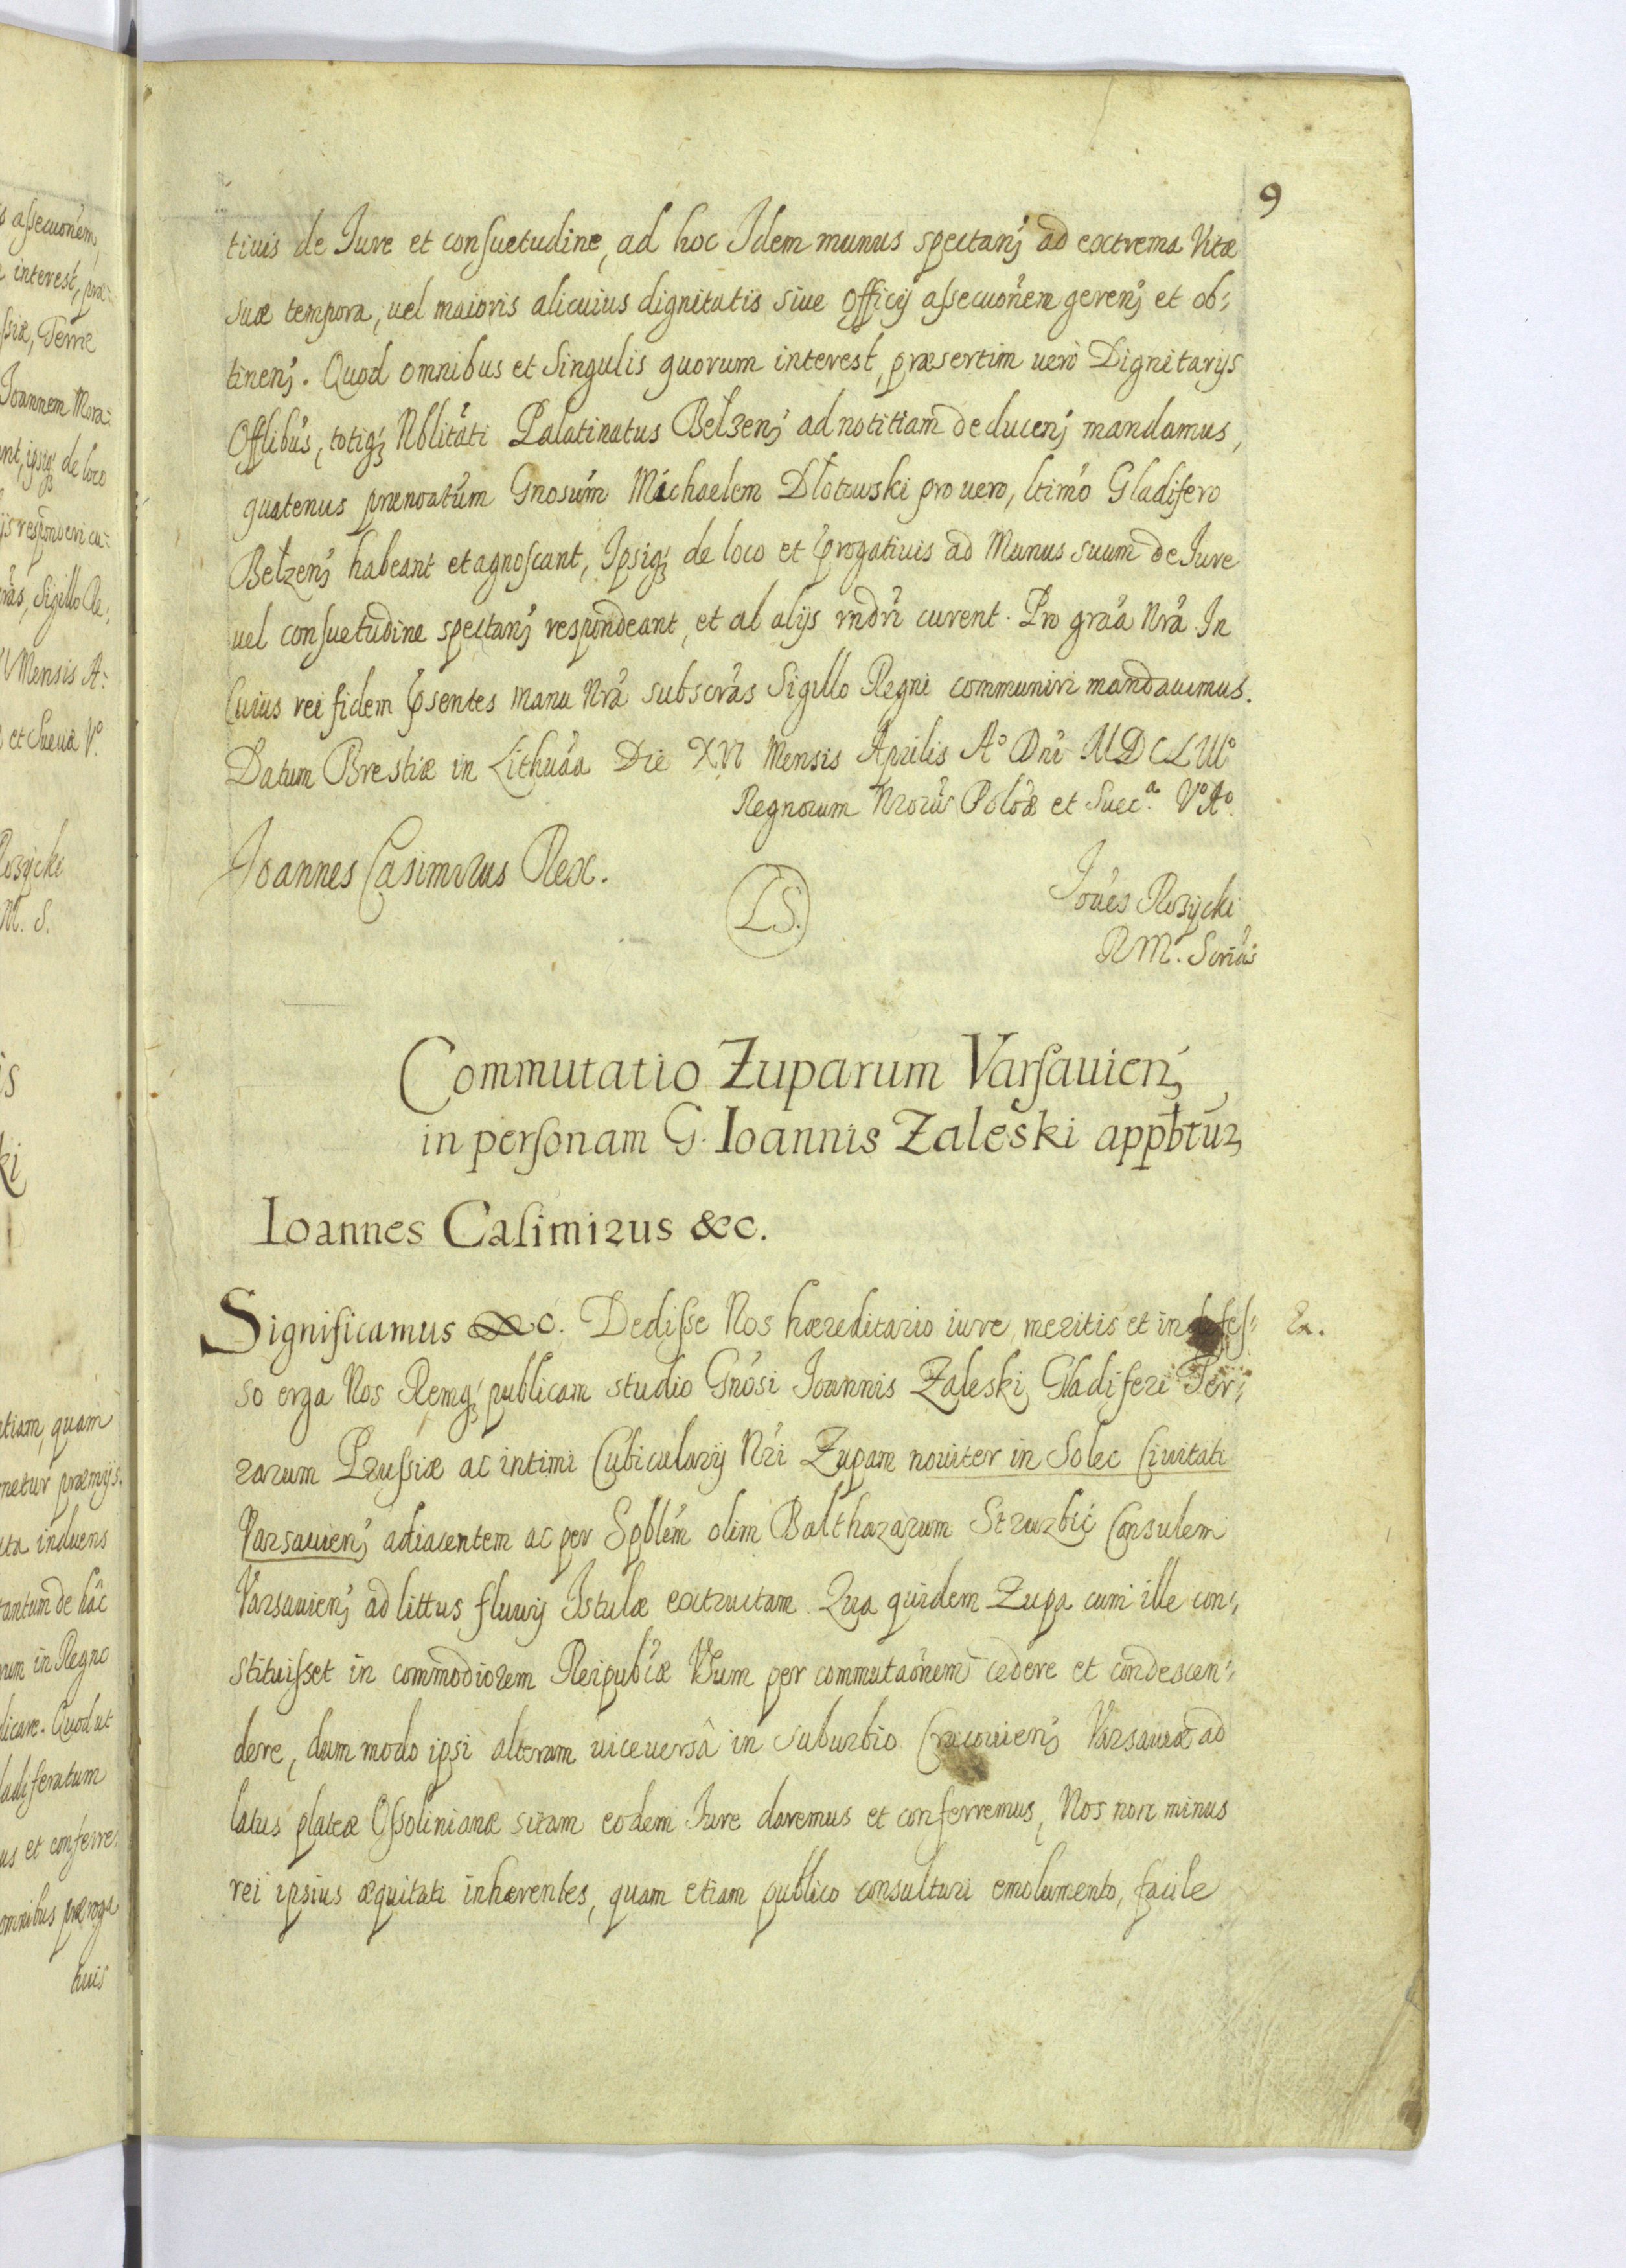 9
tiuis de Iure et consuetudine, ad hoc Idem munus spectanȝ ad extrema Vitæ
suæ tempora, uel maioris alicuius dignitatis siue Officÿ assecuonem gerenȝ et ob:
tinenȝ. Quod omnibus et Singulis quorum interest, præsertim uero Dignitarijs
Offlibus, totiqȝ Nblitati Palatinatus Bełzenȝ ad notitiam deducenȝ mandamus,
quatenus prænoatum Gnosum Michaelem Dłotowski pro uero, ltimo Gladifero
Bełzenȝ habeant et agnoscant, Ipsiqȝ de loco et progatiuis ad Munus suum de Iure
uel consuetudine spectanȝ respondeant, et al alijs rndri curent. Pro graa Nra. In
Cuius rei fidem psentes manu Nra subscras Sigillo Regni communiri mandauimus.
Datum Brestiæ in Lithuaa Die XVI Mensis Aprilis A° Dni MDCLIII°
Regnorum Nrorum Poloæ et Suec.ᵃ V° A°.
Joannes Casimirus Rex.
LS.
Joues Rozycki
RM. Scrius
Commutatio Zuparum Varsauienȝ
in personam G. Ioannis Zaleski appbtur
Ioannes Casimirus &c.
Significamus &c. Dedisse Nos hæreditario iure, meritis et indefes:
so erga Nos Remqȝ publicam studio Gnosi Ioannis Zaleski, Gladiferi Ter:
rarum Prussiæ ac intimi Cubicularij Nri Zupam nouiter in Solec Ciuitati
Varsauienȝ adiacentem ac per Spblem olim Balthazarum Strurbic Consulem
Varsauienȝ ad littus fluuij Istulæ extructam. Qua quidem Zupa cum ille con:
stituisset in commodiorem Reipubcæ Vsum per commutaonem cedere et condescen:
dere, dum modo ipsi alteram uiceuersâ in suburbio Cracouienȝ Varsauiæ ad
latus plateæ Ossolinianæ sitam eodem Iure daremus et conferremus, Nos non minus
rei ipsius æquitati inhærentes, quam etiam publico consulturi emolumento, facile